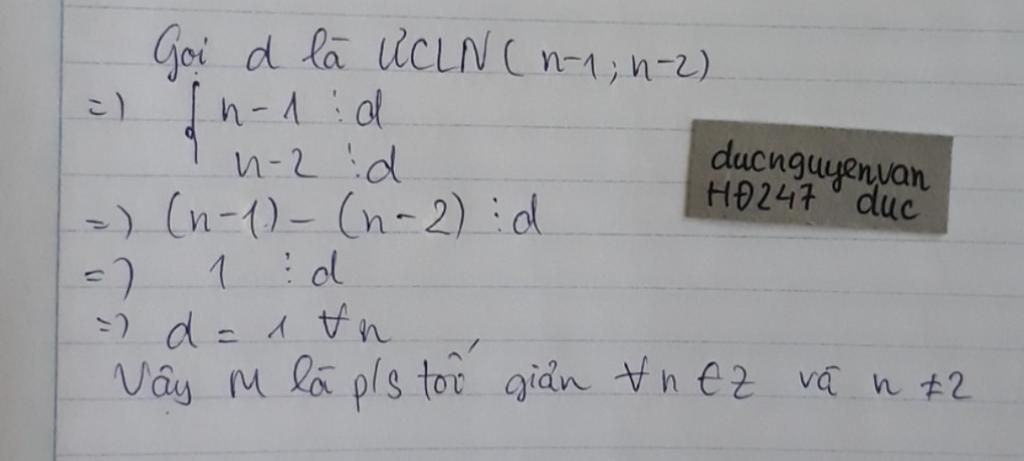 Gọi d là ƯCLN ( n-1 ; n-2)
=> { n - 1 ⋮ d
n - 2 ⋮ d
=> (n-1) - (n-2) ⋮ d
=> 1 ⋮ d
=> d = 1 ∀n
Vậy M là p/s tối giản ∀n ∈ Z và n ≠ 2
ducnguyenvan
HĐ247 duc